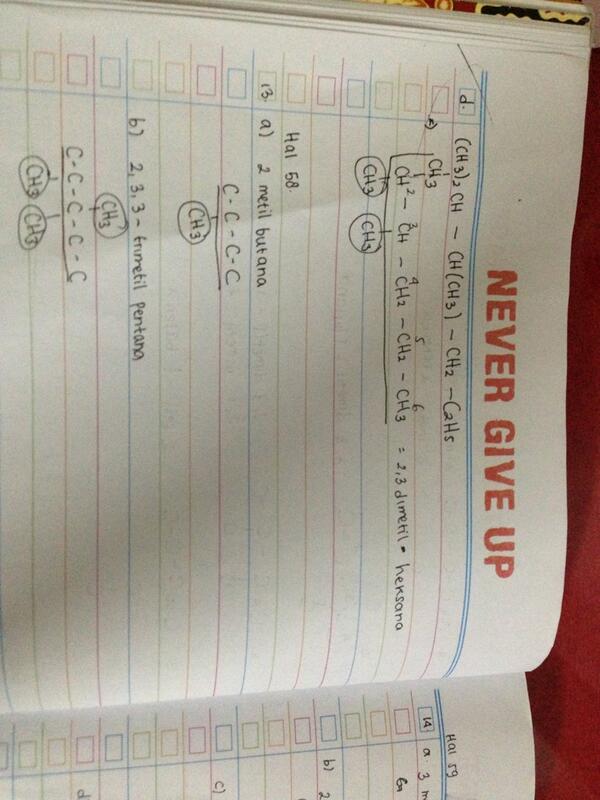 NEVER GIVE UP
d. (CH3)2 CH - CH(CH3) - CH2 - C2H5
CH3
CH2 - 3CH - 4CH2 - 5CH2 - 6CH3 = 2,3 dimetil - heksana
CH3 CH3
Hal 58.
13. a) 2 metil butana
C-C-C-C
CH3
b) 2,3,3-trimetil pentana
CH3
C-C-C-C-C
CH3 CH3
Hal 59
14 a. 3 m
b) 2
c)
d